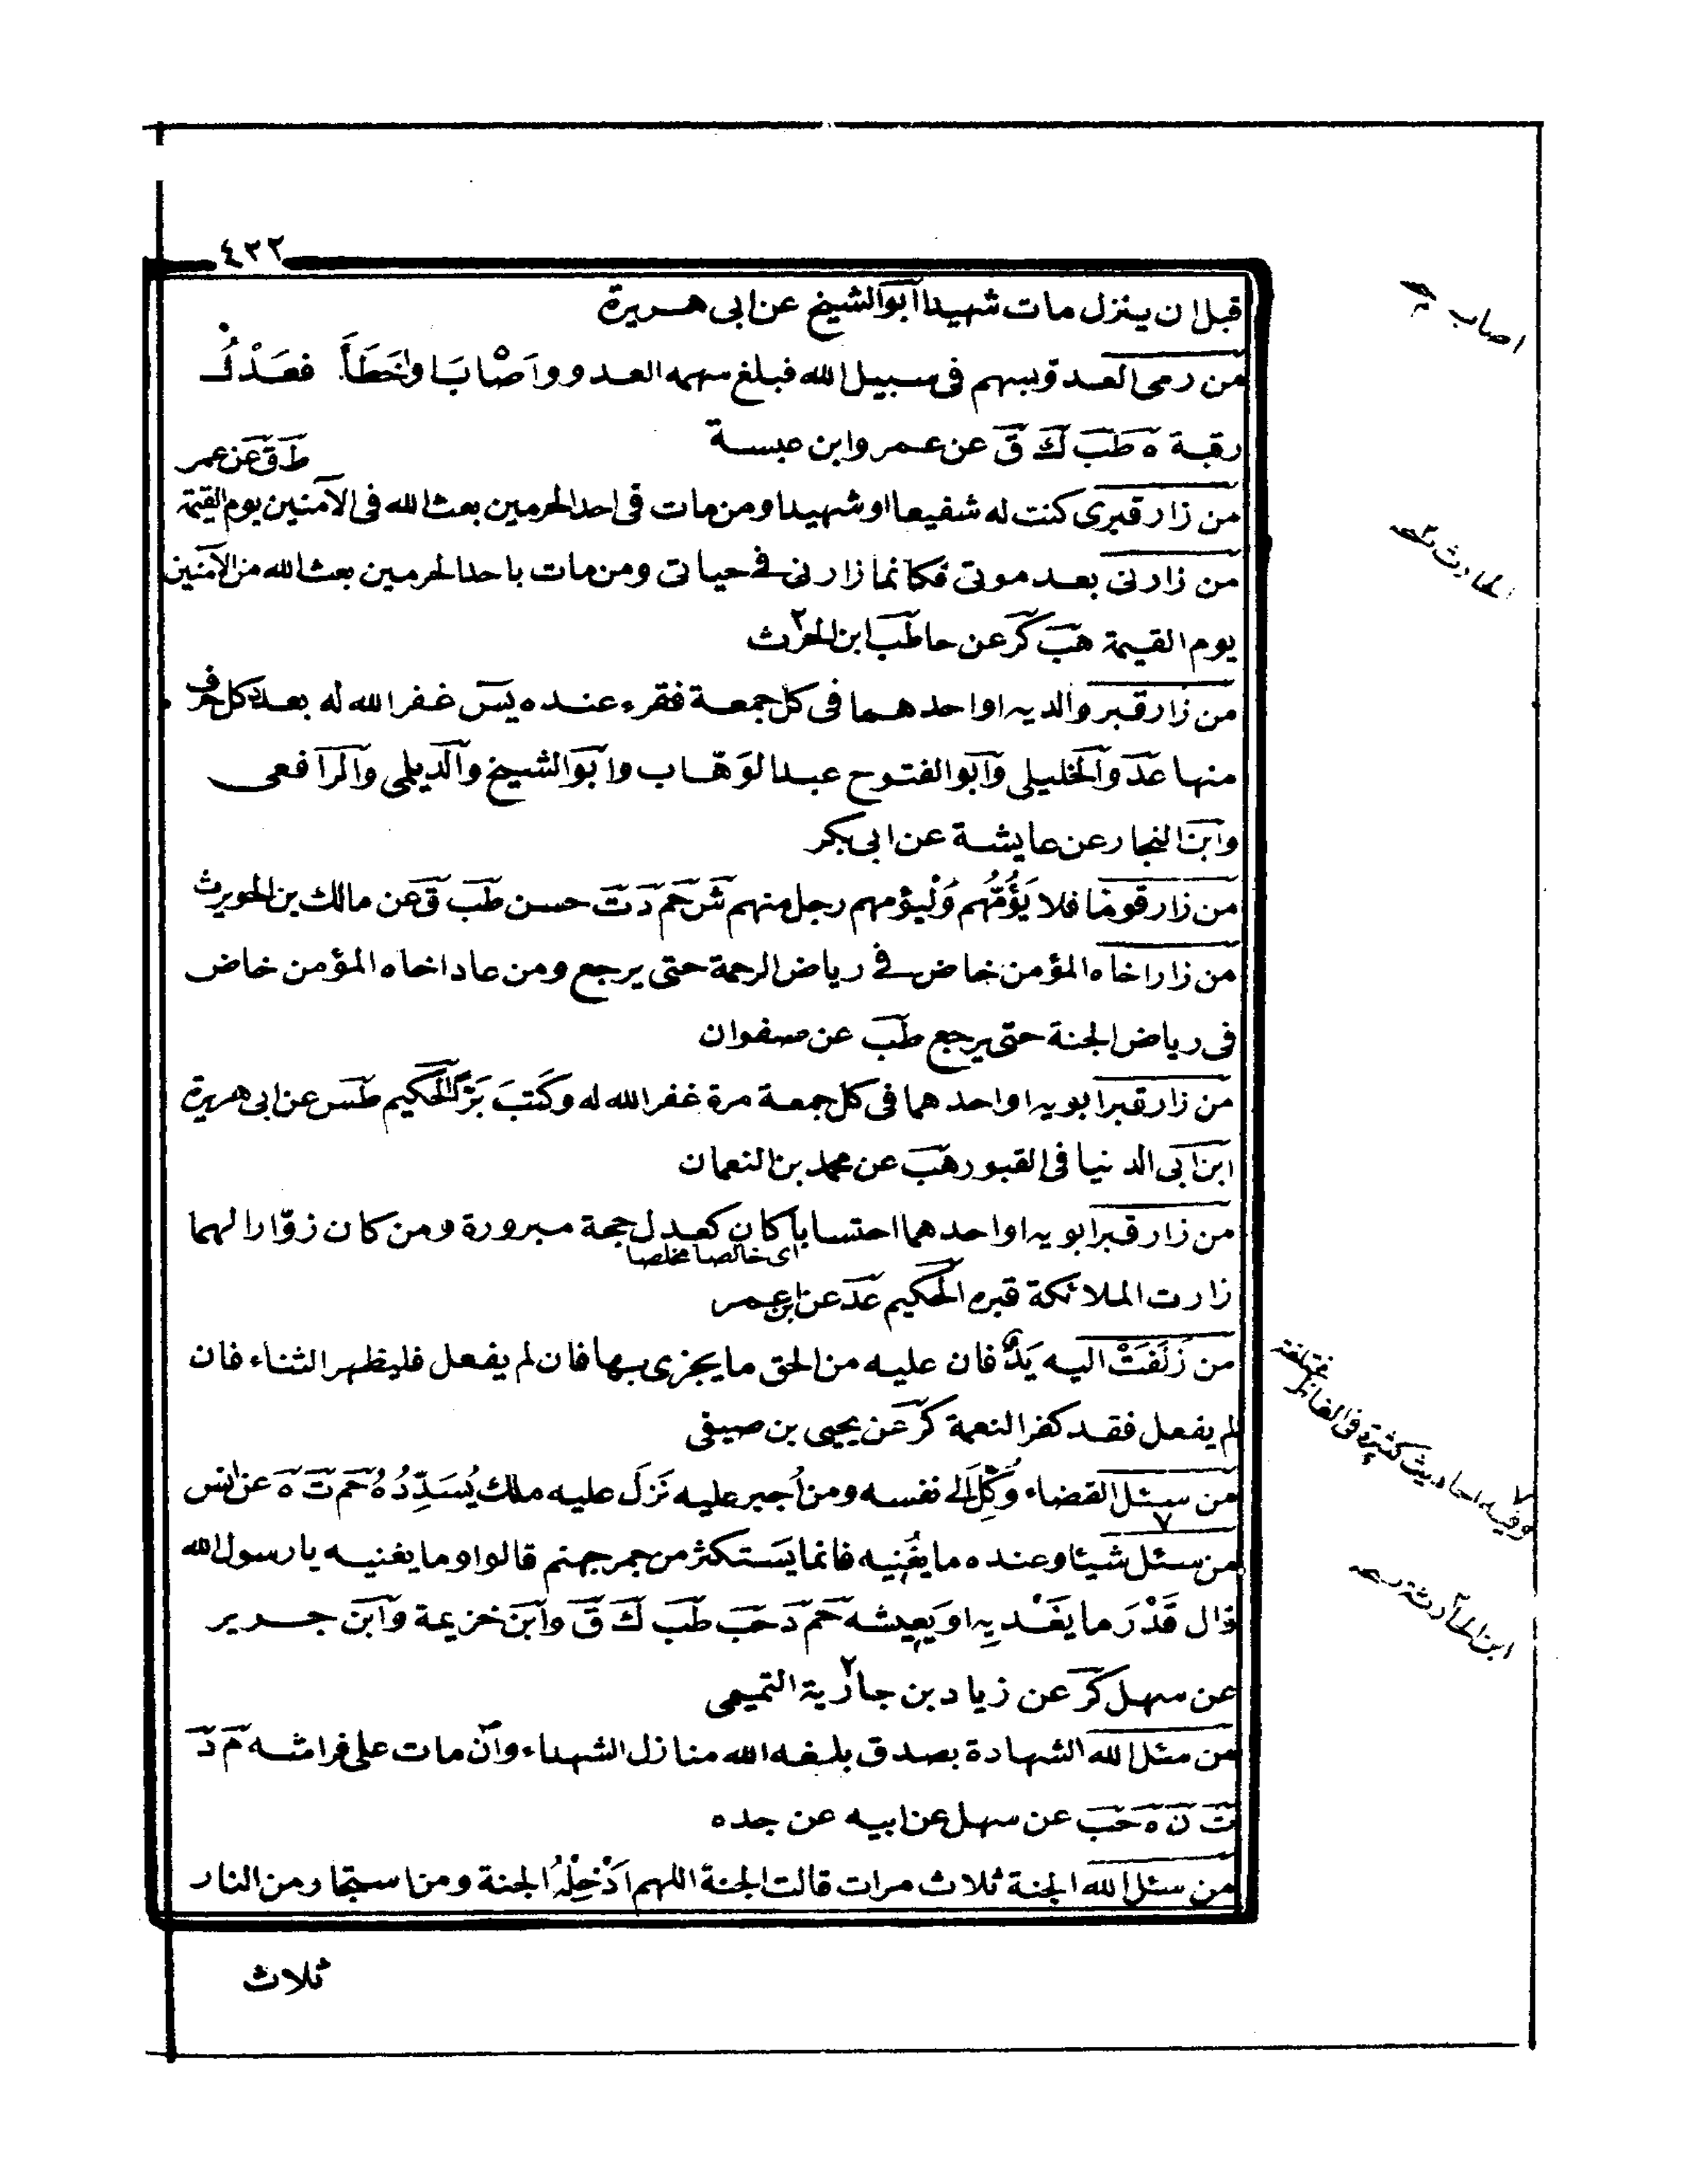 ٤٢٢
قبل ان ينزل مات شهيدا ابو الشيخ عن ابى هريرة
من رمى العدو بسهم فى سبيل الله فبلغ سهمه العدو و اَصْابَ اواَخَطَأَ فعَدْلُ
رقبة ه طب ك ق عن عمرو ابن عبسة
ط ق عن عمر
من زار قبرى كنت له شفيعا او شهيدا ومن مات فى احد الحرمين بعث الله فى الآمنين يوم القيمة
من زارنى بعد موتى فكانما زارنى فى حياتى ومن مات باحد الحرمين بعث الله من الآمنين
يوم القيمة هب كر عن حاطب ابن الحرث ٢
من زار قبر والديه او احدهما فى كل جمعة فقرء عنده يس غفر الله له بعدد كل حرف
منها عد والخليلى وابو الفتوح عبد الوَهّاب وابو الشيخ والديلمى والرافعى
وابن النجار عن عايشة عن ابى بكر
من زار قوما فلا يَؤُمُّهُم وَلْيؤمهم رجل منهم ش حم د ت حسن طب ق عن مالك بن الحويرث
من زار اخاه المؤمن خاض فى رياض الرحمة حتى يرجع ومن عاد اخاه المؤمن خاض
فى رياض الجنة حتى يرجع طب عن صفوان
من زار قبر ابويه او احدهما فى كل جمعة مرة غفر الله له وكَتَبَ بَرًّا الحكيم طس عن ابى هريرة
ابن ابى الدنيا فى القبور هب عن محمد بن النعمان
من زار قبر ابويه او احدهما احتسابا كان كعدل حجة مبرورة ومن كان زوّارا لهما
اى خالصا مخلصا
زارت الملائكة قبره الحكيم عد عن ابن عمر
من زَلَفَتْ اليه يَدٌ فان عليه من الحق ما يجزى بها فان لم يفعل فليظهر الثناء فان
لم يفعل فقد كفر النعمة كر عن يحيى بن صيفى
من سئل القضاء وُكِّلَ الى نفسه ومن اُجبر عليه نَزَلَ عليه ملك يُسَدِّدُهُ حم ت ه عن انس
من سئل شيئا ٧ وعنده ما يغُنِيه فانما يَستكثر من جمر جهنم قالوا وما يغنيه يا رسول الله
قال قَدْرَ ما يغَدّيهِ او يَعِيشه حم د حب طب ك ق وابن خزيمة وابن جرير
عن سهل كر عن زياد بن جارية ٢ التميمى
من سئل الله الشهادة بصدق بلغه الله منازل الشهداء وان مات على فراشه م د
ت ن ه حب عن سهل عن ابيه عن جده
من سئل الله الجنة ثلاث مرات قالت الجنة اللهم اَدْخِلْهُ الجنة ومن استجار من النار
ثلاث
اصاب
الحاديث
٧ وفيه احاديث كثيرة فى الفاظ مختلفة
ابن الحارثة